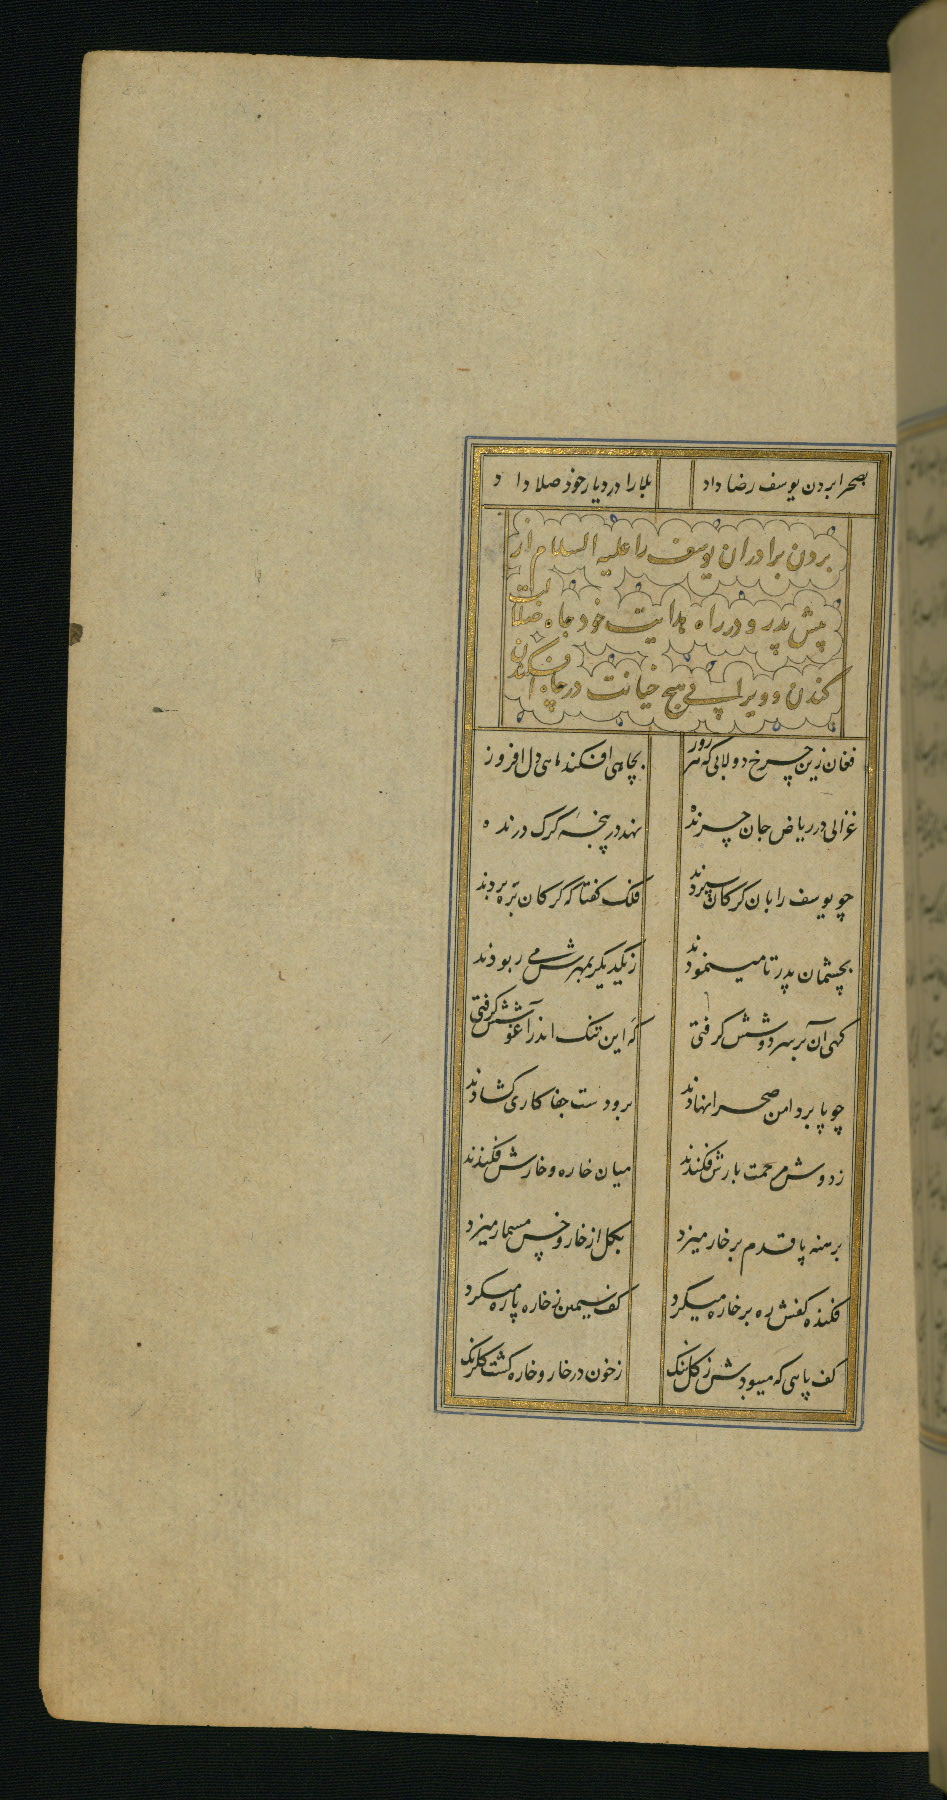 بصحرا بردن یوسف رضا داد بلا را در دیار خود صلا داد
بردن برادران یوسف را علیه السلام از
پیش پدر و در راه هدایت خود چاه ضلالت
کندن و ویرا بی هیچ خیانت در چاه افکندن
فغان زین چرخ دولابی که هر روز بچاهی افکند ماهی دل افروز
غزالی در ریاض جان چرنده نهد در پنجه کرک درنده
چو یوسف را بان کرکان سپردند فلک کفتا که کرکان بره بردند
بچشمان پدر تا مینمودند ز یکدیکر بمهرش می ربودند
کهی آن بر سر دوشش کرفتی که این تنک اندر آغوشش کرفتی
چو پا بر دامن صحرا نهادند برو دست جفا کاری کشادند
ز دوش مرحمت بارش فکندند میان خاره و خارش فکندند
برهنه پا قدم بر خار میزد بکل از خار و خس مسمار میزد
فکنده کفش ره بر خاره میکرد کف سیمین ز خاره پاره میکرد
کف پاهی که میبودش ز کل ننک ز خون در خار و خاره کشت کلرنک